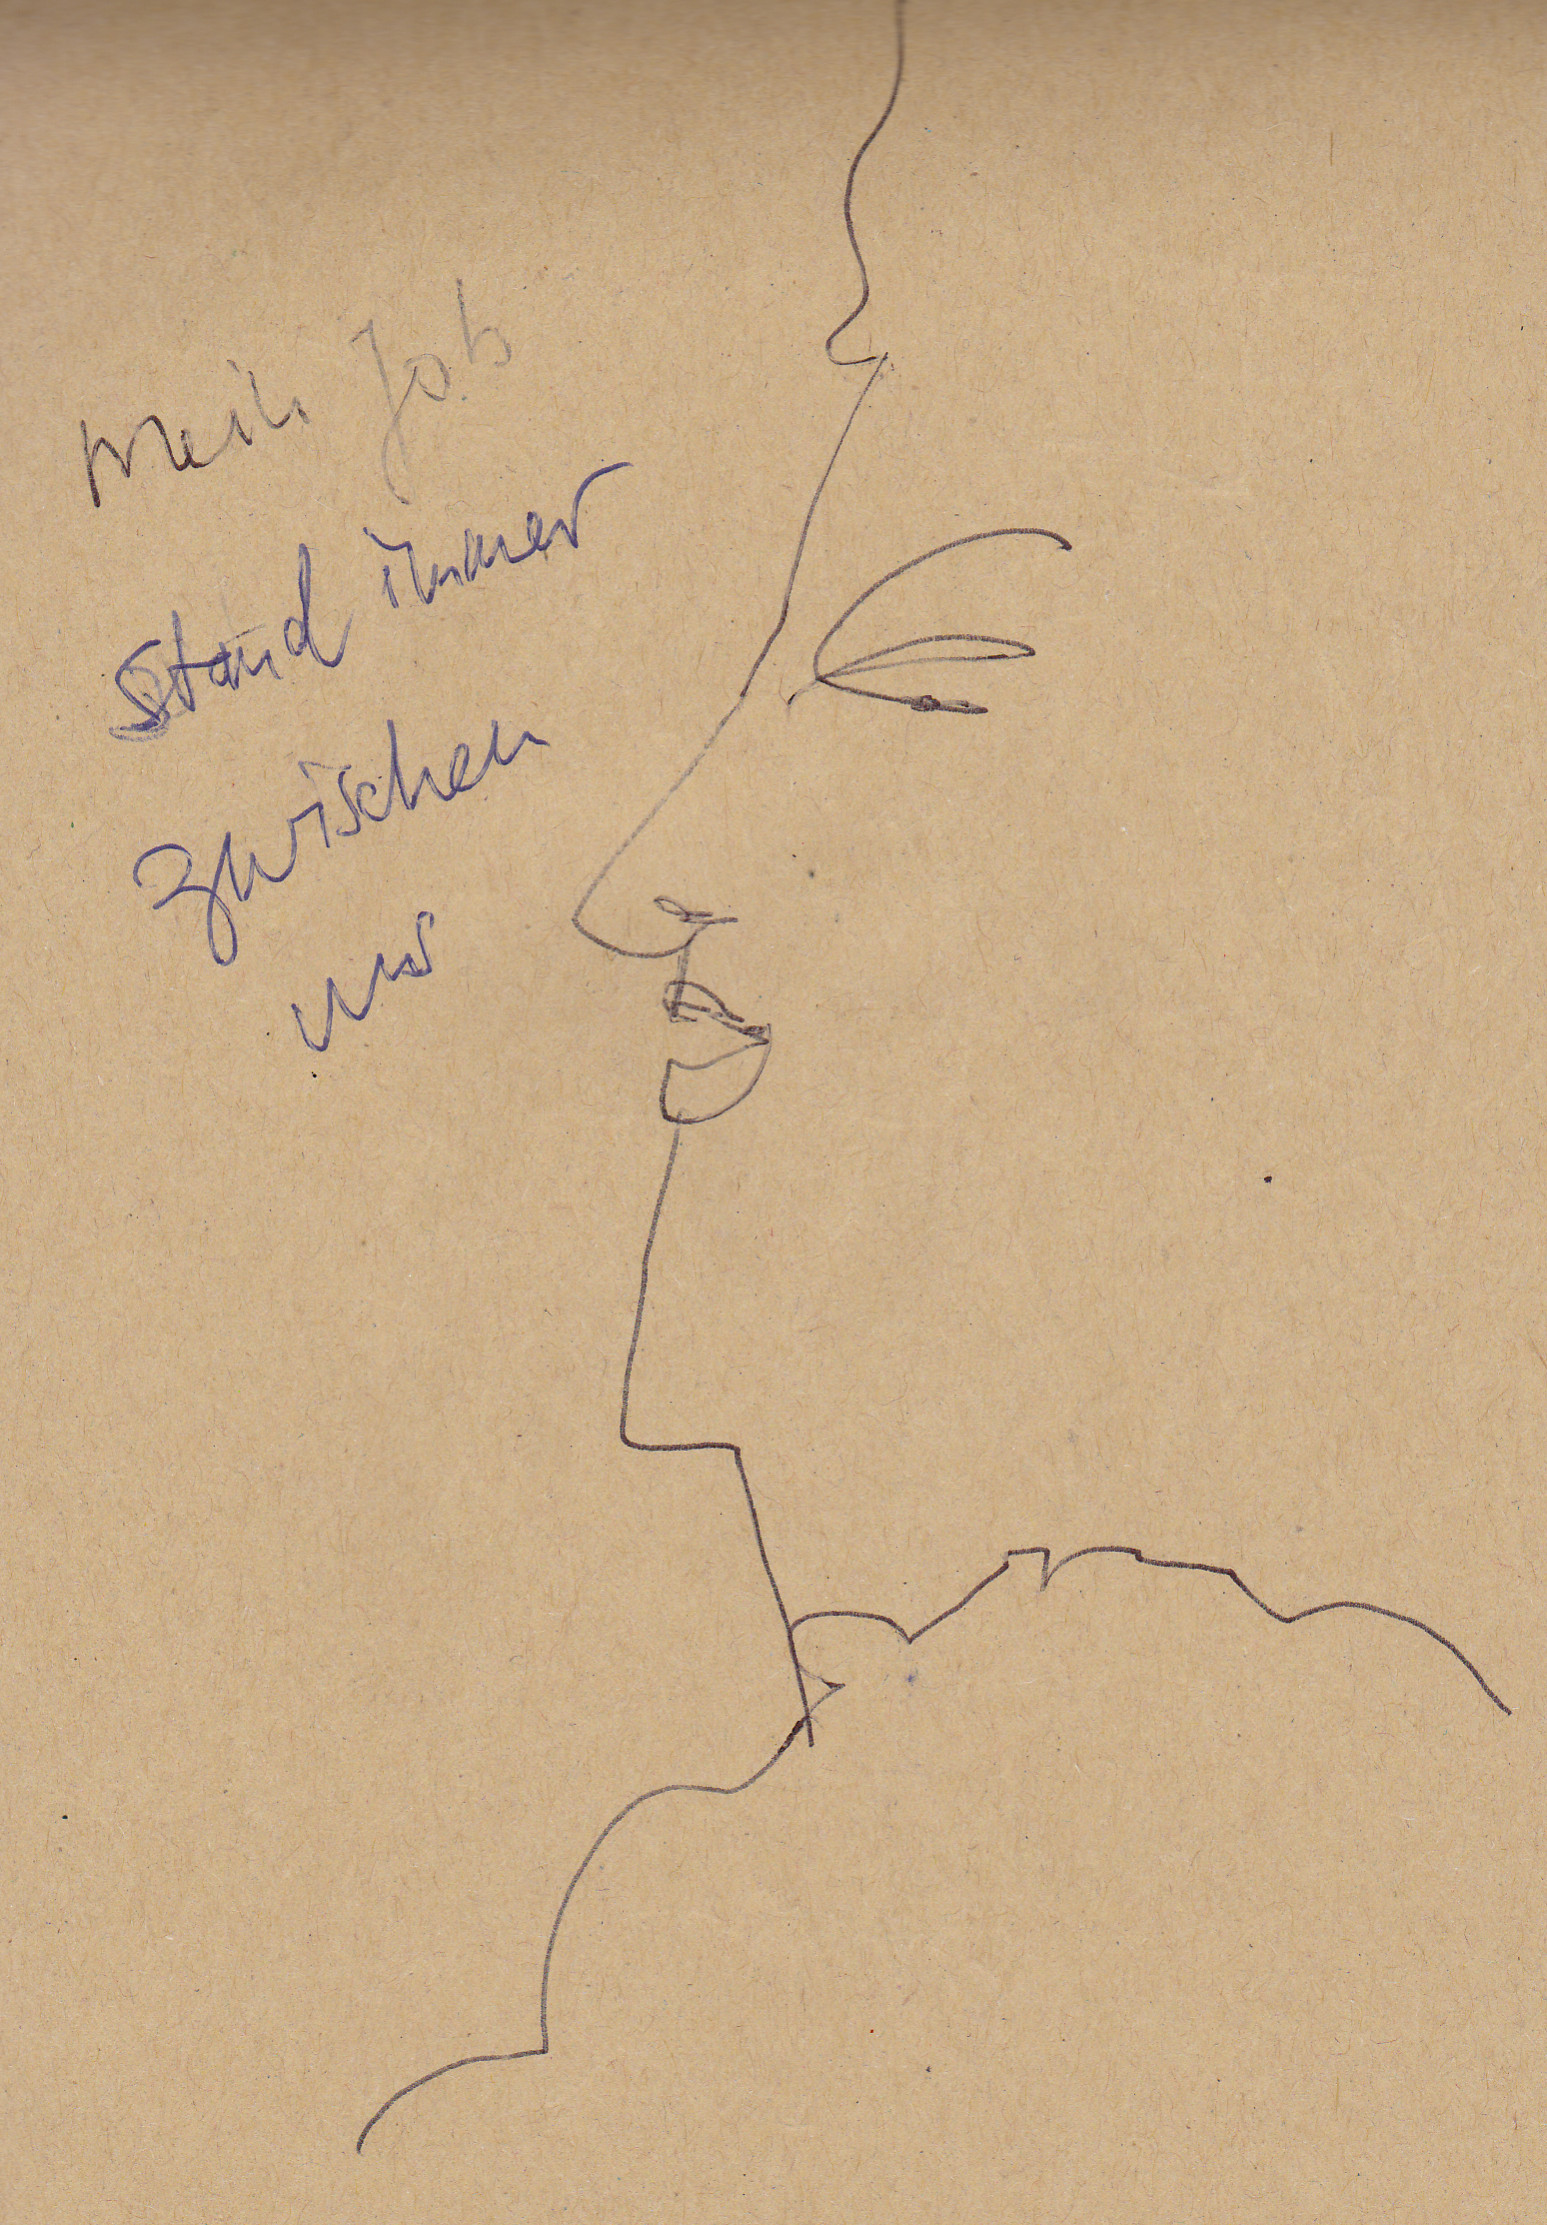 Mein Job
stand immer
zwischen
uns